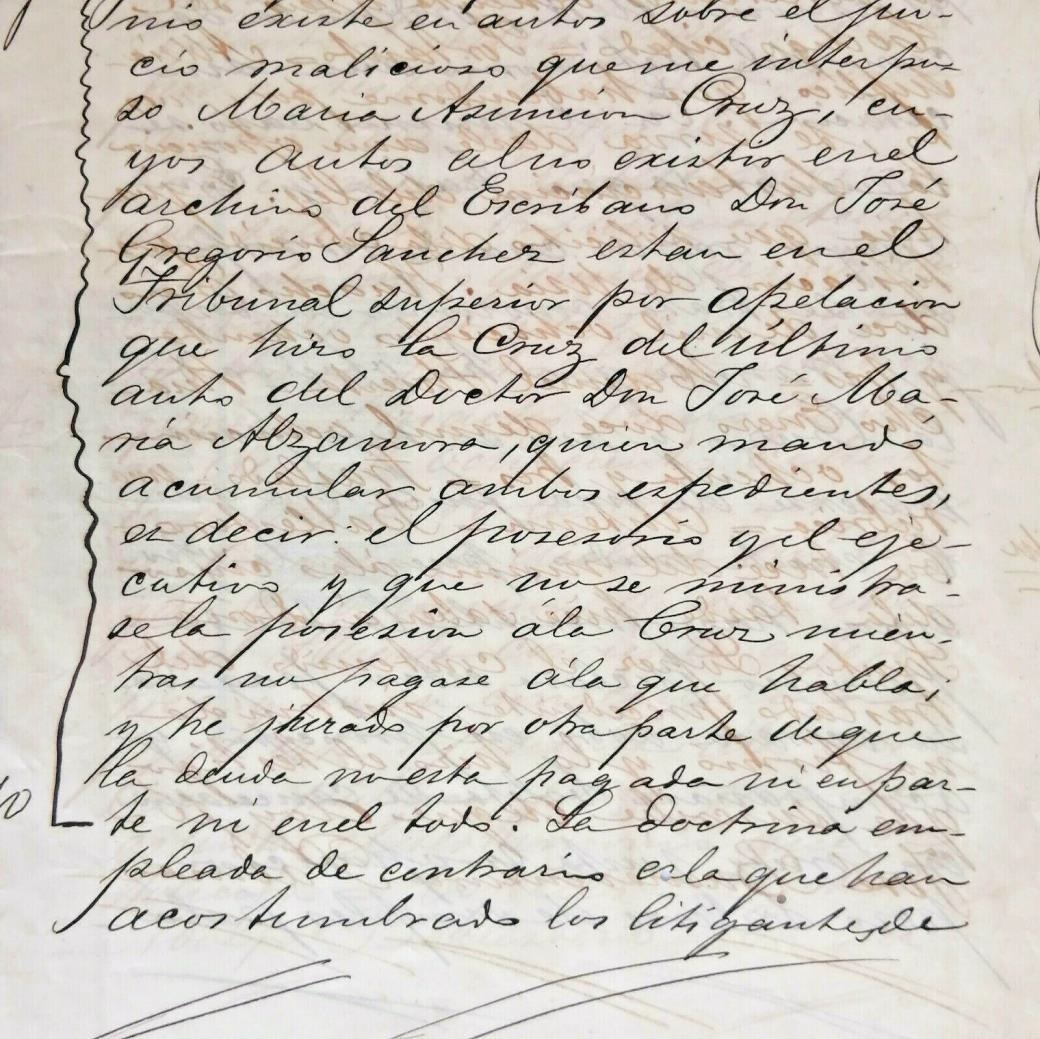 mio existe en autos sobre el jui-
cio malicioso que me interpu-
so Maria Asuncion Cruz, cu-
yos autos al no existir en el
archivo del Escribano Don José
Gregorio Sanchez estan en el
Tribunal superior por apelacion
que hizo la Cruz del último
auto del Doctor Don José Ma-
ria Alzamora, quien mandó
acumular ambos espedientes,
es decir: el posesorio y el eje-
cutivo y que no se ministra-
se la posesion á la Cruz mien-
tras no pagase á la que habla;
y he jurado por otra parte de que
la deuda no esta pagada ni en par-
te ni en el todo. La doctrina em-
pleada de contrario es la que han
acostumbrado los litigantes de